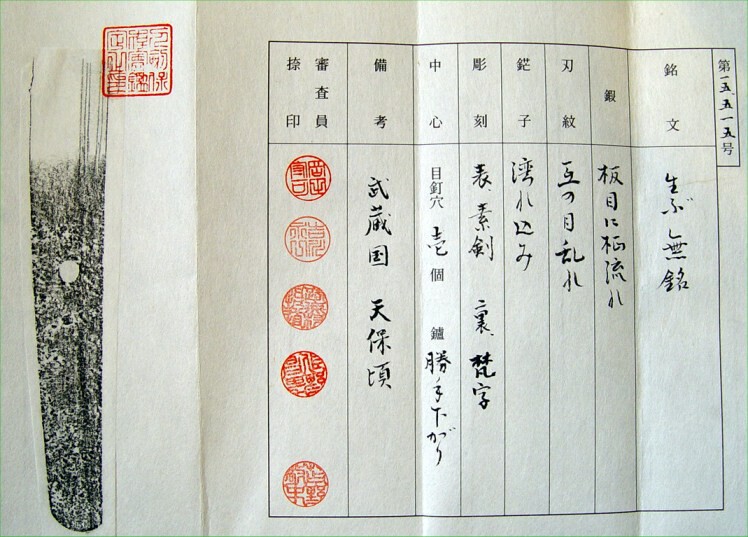 第一五、五一五号
銘文 生ぶ無銘
鍜 板目に柾流れ
刃紋 互の目乱れ
鋩子 湾れ込み
彫刻 表、素剣 裏、梵字
中心 目釘穴 壱 個 鑢 勝手下がり
備考 武蔵国 天保頃
審査員
捺印